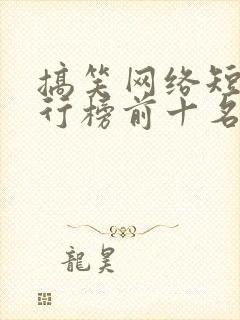 搞笑网络短
行榜前十名
龍昊